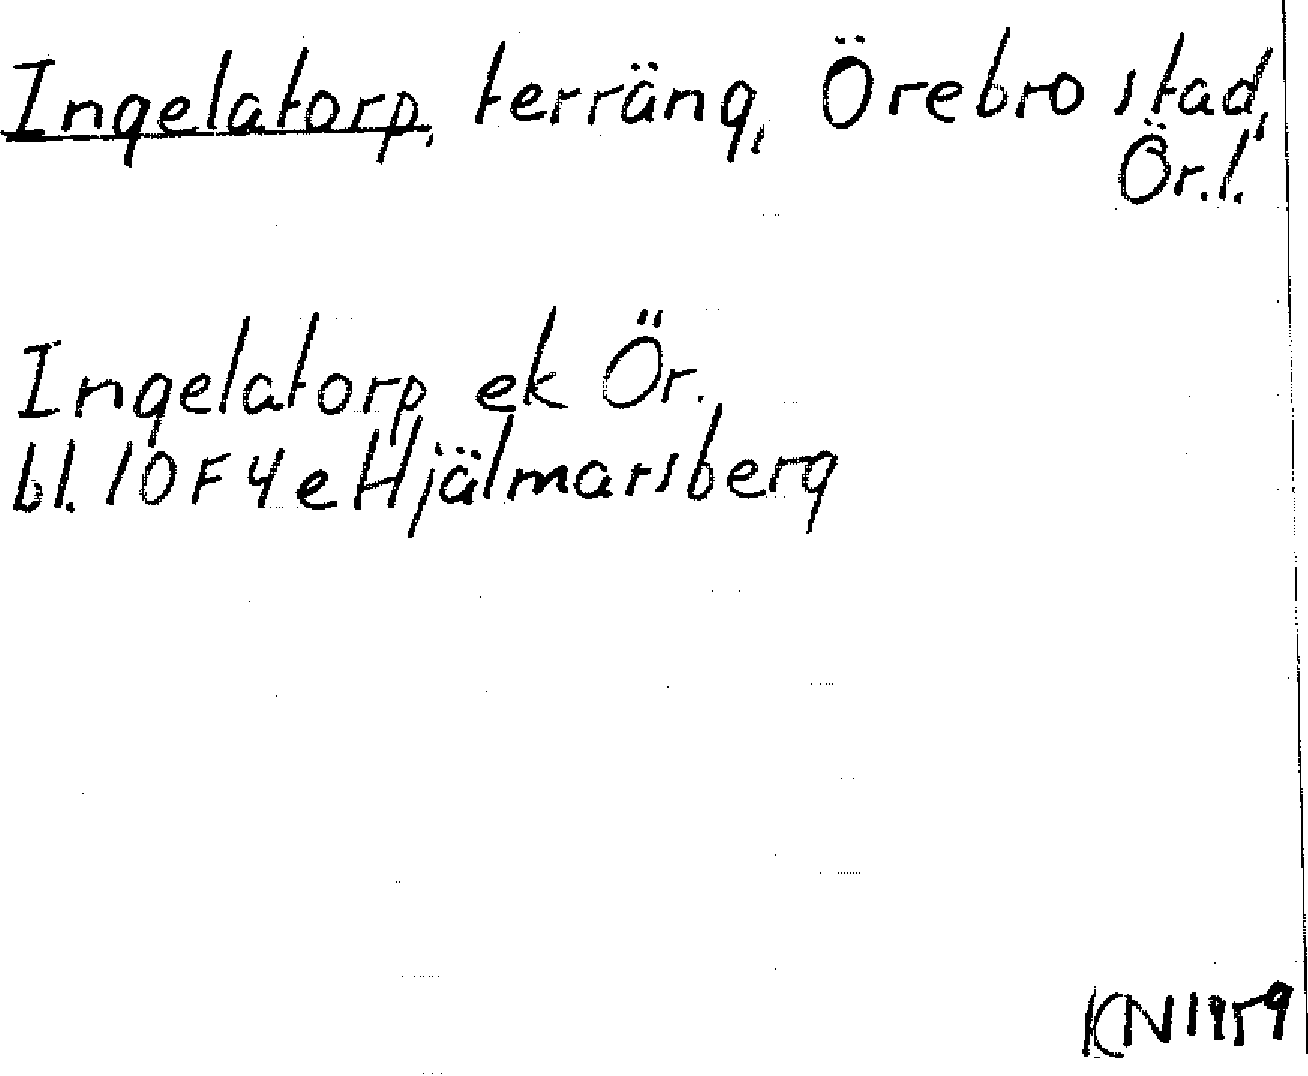 Ingelatorp, terräng, Örebro stad,
Ör.l.
Ingelatorp ek Ör.
bl. 10F4e Hjälmarsberg
KN 1959